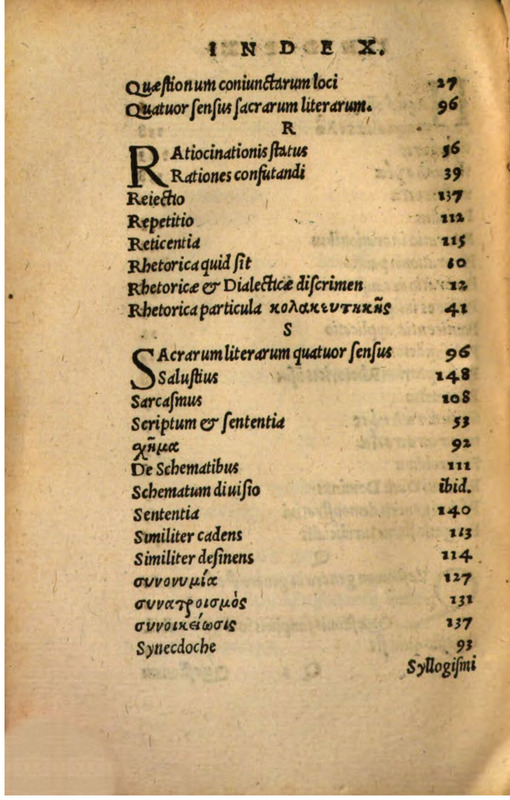 INDEX.
Quæſtionum coniunctarum loci 27
Quatuor ſenſus ſacrarum literarum. 96
R
RAtiocinationis ſtatus 56
Rationes confutandi 39
Reiectio 137
Repetitio 112
Reticentia 115
Rhetorica quid ſit 10
Rhetoricæ & Dialecticæ diſcrimen 12
Rhetorica particula κολακευτηκῆς 41
S
SAcrarum literarum quatuor ſenſus 96
Saluſtius 148
Sarcaſmus 108
Scriptum & ſententia 53
χῆμα 92
De Schematibus 111
Schematum diuiſio ibid.
Sententia 140
Similiter cadens 113
Similiter deſinens 114
συνονυμία 127
συνατροισμὸς 131
συνοικείωσις 137
Synecdoche 93
Syllogiſmi